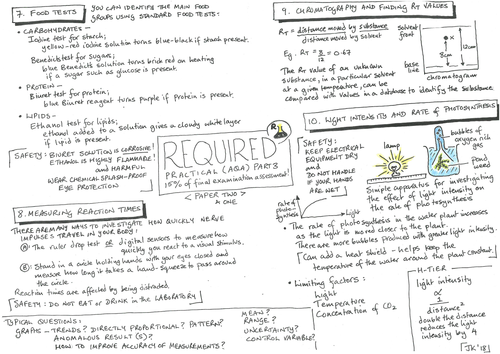 7. FOOD TESTS
YOU CAN IDENTIFY THE MAIN FOOD
GROUPS USING STANDARD FOOD TESTS:
• CARBOHYDRATES –
Iodine test for starch;
yellow-red iodine solution turns blue-black if starch present.
Benedicts test for sugars;
blue Benedicts solution turns brick red on heating
if a sugar such as glucose is present.
• PROTEIN –
Biuret test for protein;
blue Biuret reagent turns purple if protein is present.
• LIPIDS –
Ethanol test for lipids;
ethanol added to solution gives a cloudy white layer
if lipid is present.
SAFETY: BIURET SOLUTION IS CORROSIVE!
ETHANOL IS HIGHLY FLAMMABLE!
AND HARMFUL.
WEAR CHEMICAL SPLASH-PROOF
EYE PROTECTION
8. MEASURING REACTION TIMES
THERE ARE MANY WAYS TO INVESTIGATE HOW QUICKLY NERVE
IMPULSES TRAVEL IN YOUR BODY:
A The ruler drop test or digital sensors to measure how
quickly you react to a visual stimulus.
B Stand in a circle holding hands with your eyes closed and
measure how long it takes a hand-squeeze to pass around
the circle.
Reaction times are affected by being distracted.
SAFETY: DO NOT EAT OR DRINK IN THE LABORATORY
TYPICAL QUESTIONS:
GRAPHS – TRENDS? DIRECTLY PROPORTIONAL? PATTERN?
ANOMALOUS RESULT(S)?
HOW TO IMPROVE ACCURACY OF MEASUREMENTS?
MEAN?
RANGE?
UNCERTAINTY?
CONTROL VARIABLE?
REQUIRED
PRACTICAL (AQA) PART 3
15% of final examination assessment!
< PAPER TWO >
& ONE
9. CHROMATOGRAPHY AND FINDING Rf VALUES
Rf = distance moved by substance
distance moved by solvent
Eg. Rf = 8/12 = 0.67
The Rf value of an unknown
substance, in a particular solvent
at a given temperature, can be
compared with values in a database to identify the substance
solvent
front
base
line
8cm
12cm
chromatogram
10. LIGHT INTENSITY AND RATE OF PHOTOSYNTHESIS
SAFETY:
KEEP ELECTRICAL
EQUIPMENT DRY
AND
DO NOT HANDLE
IF YOUR HANDS
ARE WET
lamp
bubbles of
oxygen rich
gas
Pond
weed
Simple apparatus for investigating
the effect of light intensity on
the rate of photosynthesis
rate of
photo-
synthesis
Light
• The rate of photosynthesis in the water plant increases
as the light is moved closer to the plant.
There are more bubbles produced with greater light intensity.
[Can add a heat shield – helps keep the
temperature of the water around the plant constant]
• Limiting factors:
Light
Temperature
Concentration of CO2
H-TIER
light intensity
1
distance²
double the distance
reduces the light
intensity by 4
JK '18